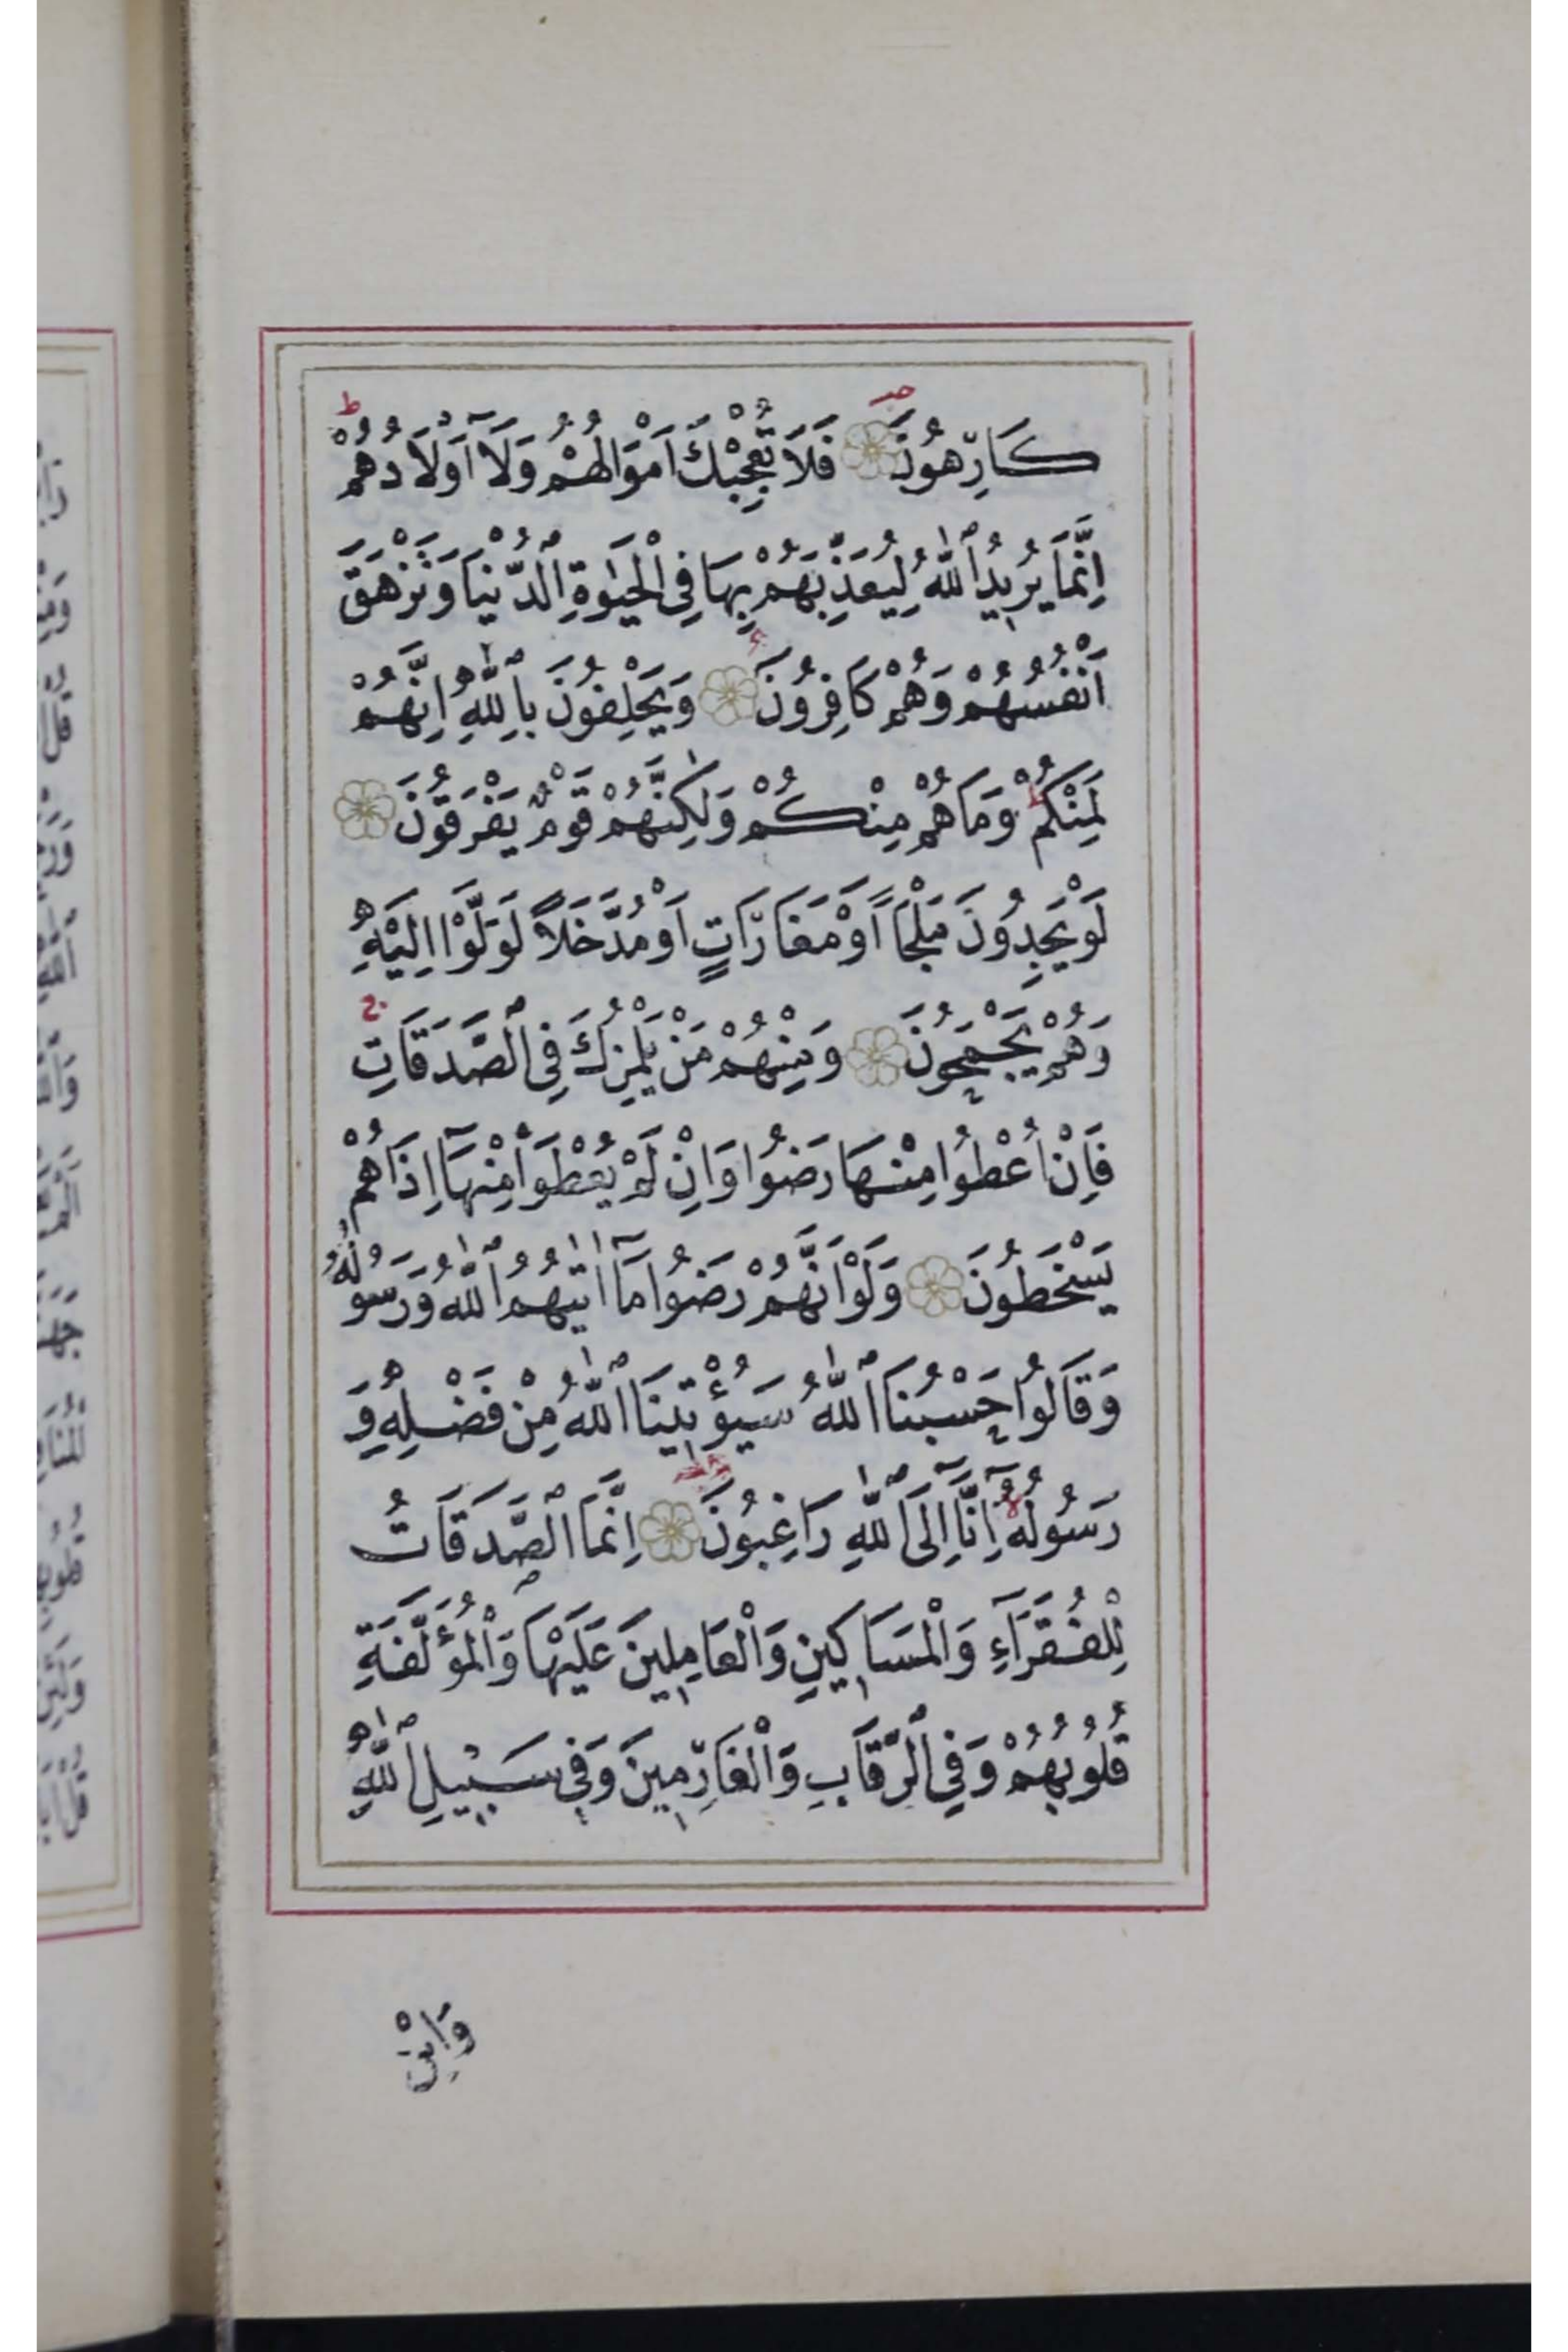 كَارِهُونَ فَلَا تُعْجِبْكَ اَمْوَالُهُمْ وَلَآ اَوْلَادُهُمْ ط
اِنَّمَا يُرِيدُ ٱللّٰهُ لِيُعَذِّبَهُمْ بِهَا فِى الْحَيٰوةِ ٱلدُّنْيَا وَتَزْهَقَ
اَنْفُسُهُمْ وَهُمْ كَافِرُونَ وَيَحْلِفُونَ بِٱللّٰهِ اِنَّهُمْ
لَمِنْكُمْ ط وَمَا هُمْ مِنْكُمْ وَلٰكِنَّهُمْ قَوْمٌ يَفْرَقُونَ
لَوْ يَجِدُونَ مَلْجَاً اَوْ مَغَارَاتٍ اَوْ مُدَّخَلاً لَوَلَّوْا اِلَيْهِ
وَهُمْ يَجْمَحُونَ وَمِنْهُمْ مَنْ يَلْمِزُكَ فِى ٱلصَّدَقَاتِ ج
فَاِنْ اُعْطُوا مِنْهَا رَضُوا وَاِنْ لَمْ يُعْطَوْا مِنْهَآ اِذَا هُمْ
يَسْخَطُونَ وَلَوْ اَنَّهُمْ رَضُوا مَآ اٰتٰيهُمُ ٱللّٰهُ وَرَسُولُهُ
وَقَالُوا حَسْبُنَا ٱللّٰهُ سَيُؤْتِينَا ٱللّٰهُ مِنْ فَضْلِهِ وَ
رَسُولُهُ لا اِنَّآ اِلَى ٱللّٰهِ رَاغِبُونَ اِنَّمَا ٱلصَّدَقَاتُ
لِلْفُقَرَآءِ وَالْمَسَاكِينِ وَالْعَامِلِينَ عَلَيْهَا وَالْمُؤَلَّفَةِ
قُلُوبُهُمْ وَفِى ٱلرِّقَابِ وَالْغَارِمِينَ وَفِى سَبِيلِ ٱللّٰهِ
وَابْنِ